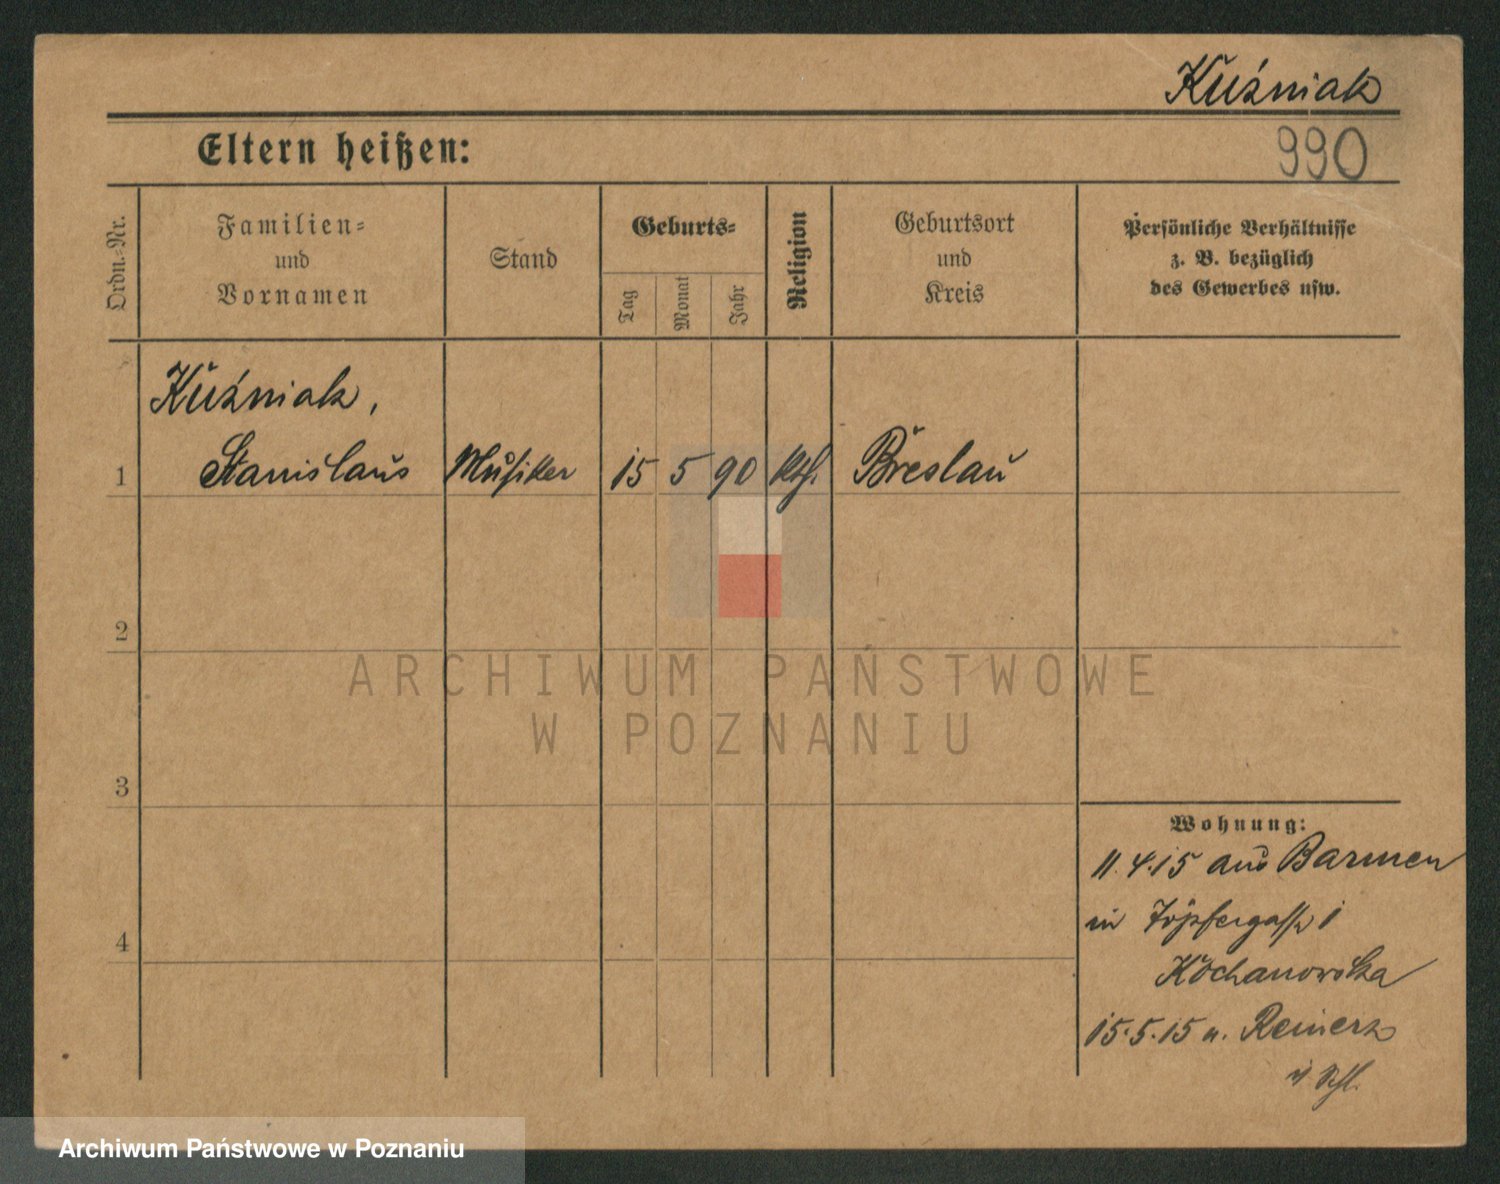 Kuźniak
990
Eltern heißen:
Ordn.=Nr.
Familien=
und
Vornamen
Stand
Geburts=
Tag
Monat
Jahr
Religion
Geburtsort
und
Kreis
Persönliche Verhältnisse
z. B. bezüglich
des Gewerbes usw.
Kuźniak,
1 Stanislaus Musiker 15 5 90 kth. Breslau
2
3
4
Wohnung:
11.4.15 aus Barmen
in Töpfergasse 1
Kochanowska
15.5.15 n. Reinerz
i/ Schl.
ARCHIWUM PAŃSTWOWE
W POZNANIU
Archiwum Państwowe w Poznaniu